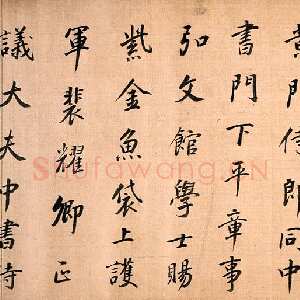 黄門侍郎同中
書門下平章事
弘文館學士賜
紫金魚袋上護
軍裴耀卿正
議大夫中書侍
Shufawang.CN